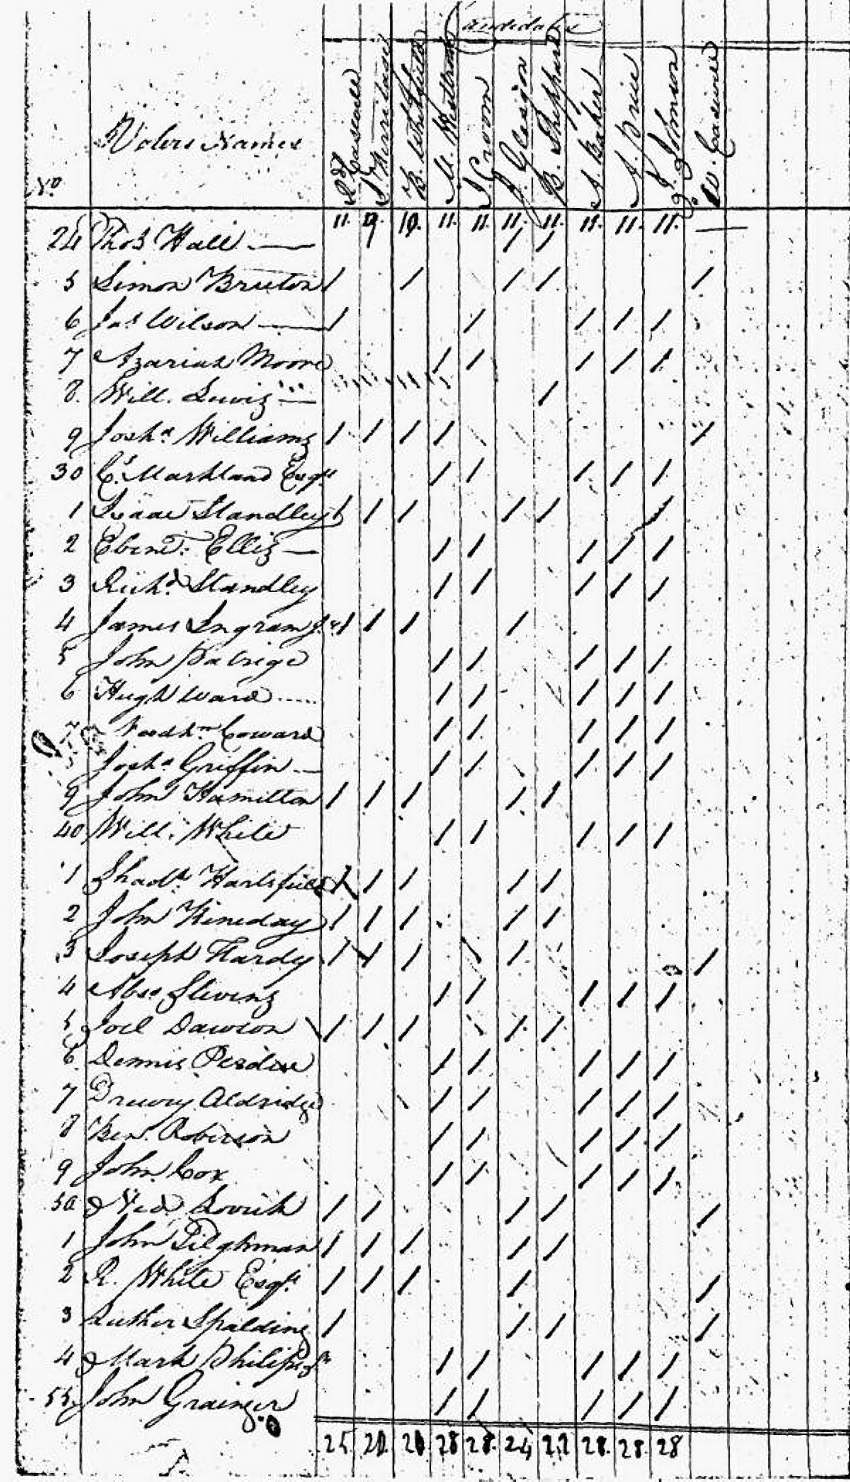 Candidates
No Voters Names R. Caswell B. Whitfield M. Westbrook J. Groom J. Glasgow B. Sheppard A. Baker A. Price J. Johnson W. Caswell
11. 9 10. 11. 11. 11. 11. 11. 11. 11. —
24 Thos Hall —
5 Simon Bruton / / / / /
6 Jas Wilson — / / / / /
7 Azariah Moore / / / / /
8. Will. Lewis — /
9 Josha Williams / / / / /
30 C. Markland Esqr / / / / /
1 Isaac Standley / / / / / /
2 Ebenr. Ellis — / / / / /
3 Richd Standley / / / / /
4 James Ingram Jr / / / /
5 John / / / / /
6 Hugh Ward ..... / / / / /
7 Needhm Coward / / / / /
Josha Griffin — / / / / /
9 John Hamilton / / / / /
40 Will. White / / / / /
1 Shadk Hartsfield / / / / /
2 John Kineday / / / / /
3 Joseph Hardy / / / / / /
4 Abso Stevens / / / / /
5 Joel Dawson / / / / /
6 Dennis / / / / /
7 Drewry Aldridge / / / / /
8 Ben. Roberson / / / / /
9 John Cox / / / / /
50 / / / / /
1 John Tilghman / / / / /
2 R. White Esqr. / / / / /
3 Luther Spalding / / / /
4 Mark Philips / / / / /
55. John Grainger / / / / /
25 20. 20 28 28. 24 22 28. 28. 28